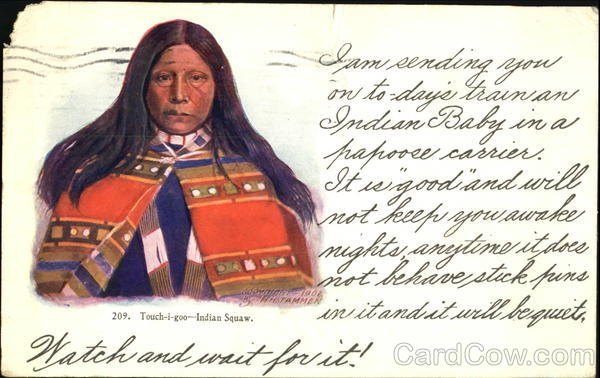 I am sending you
on to-day's train an
Indian Baby in a
papoose carrier.
It is "good" and will
not keep you awake
nights, anytime it does
not behave stick pins
in it and it will be quiet.
Watch and wait for it!
COPYRIGHT 1902
BY H.H.TAMMEN
209. Touch-i-goo—Indian Squaw.
CardCow.com